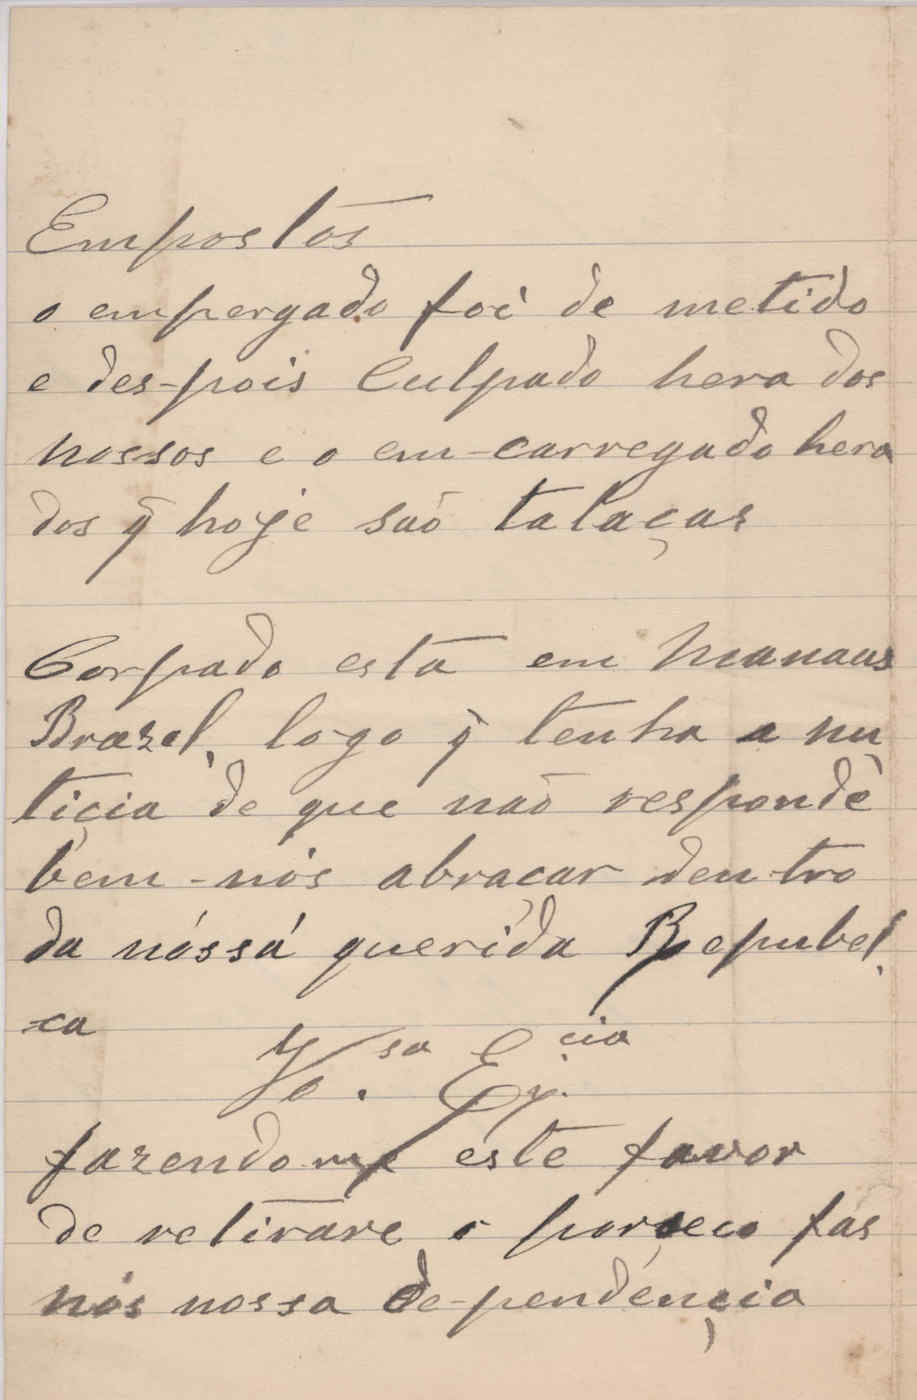 Empostos
o empergado foi de metido
e des-pois Culpado hera dos
nossos e o em-carregado hera
dos q̃ hoje saó talaças
Corpado esta em Manaus
Brazel, logo q̃ tenha a nu
ticia de que naõ respondè
bem-nós abraçar dentro
da nóssá querida Republ
ca
Vo.sa Ex.cia
fazendo me este favor
de retirare o porseço fás
nós nossa de-pendéncia